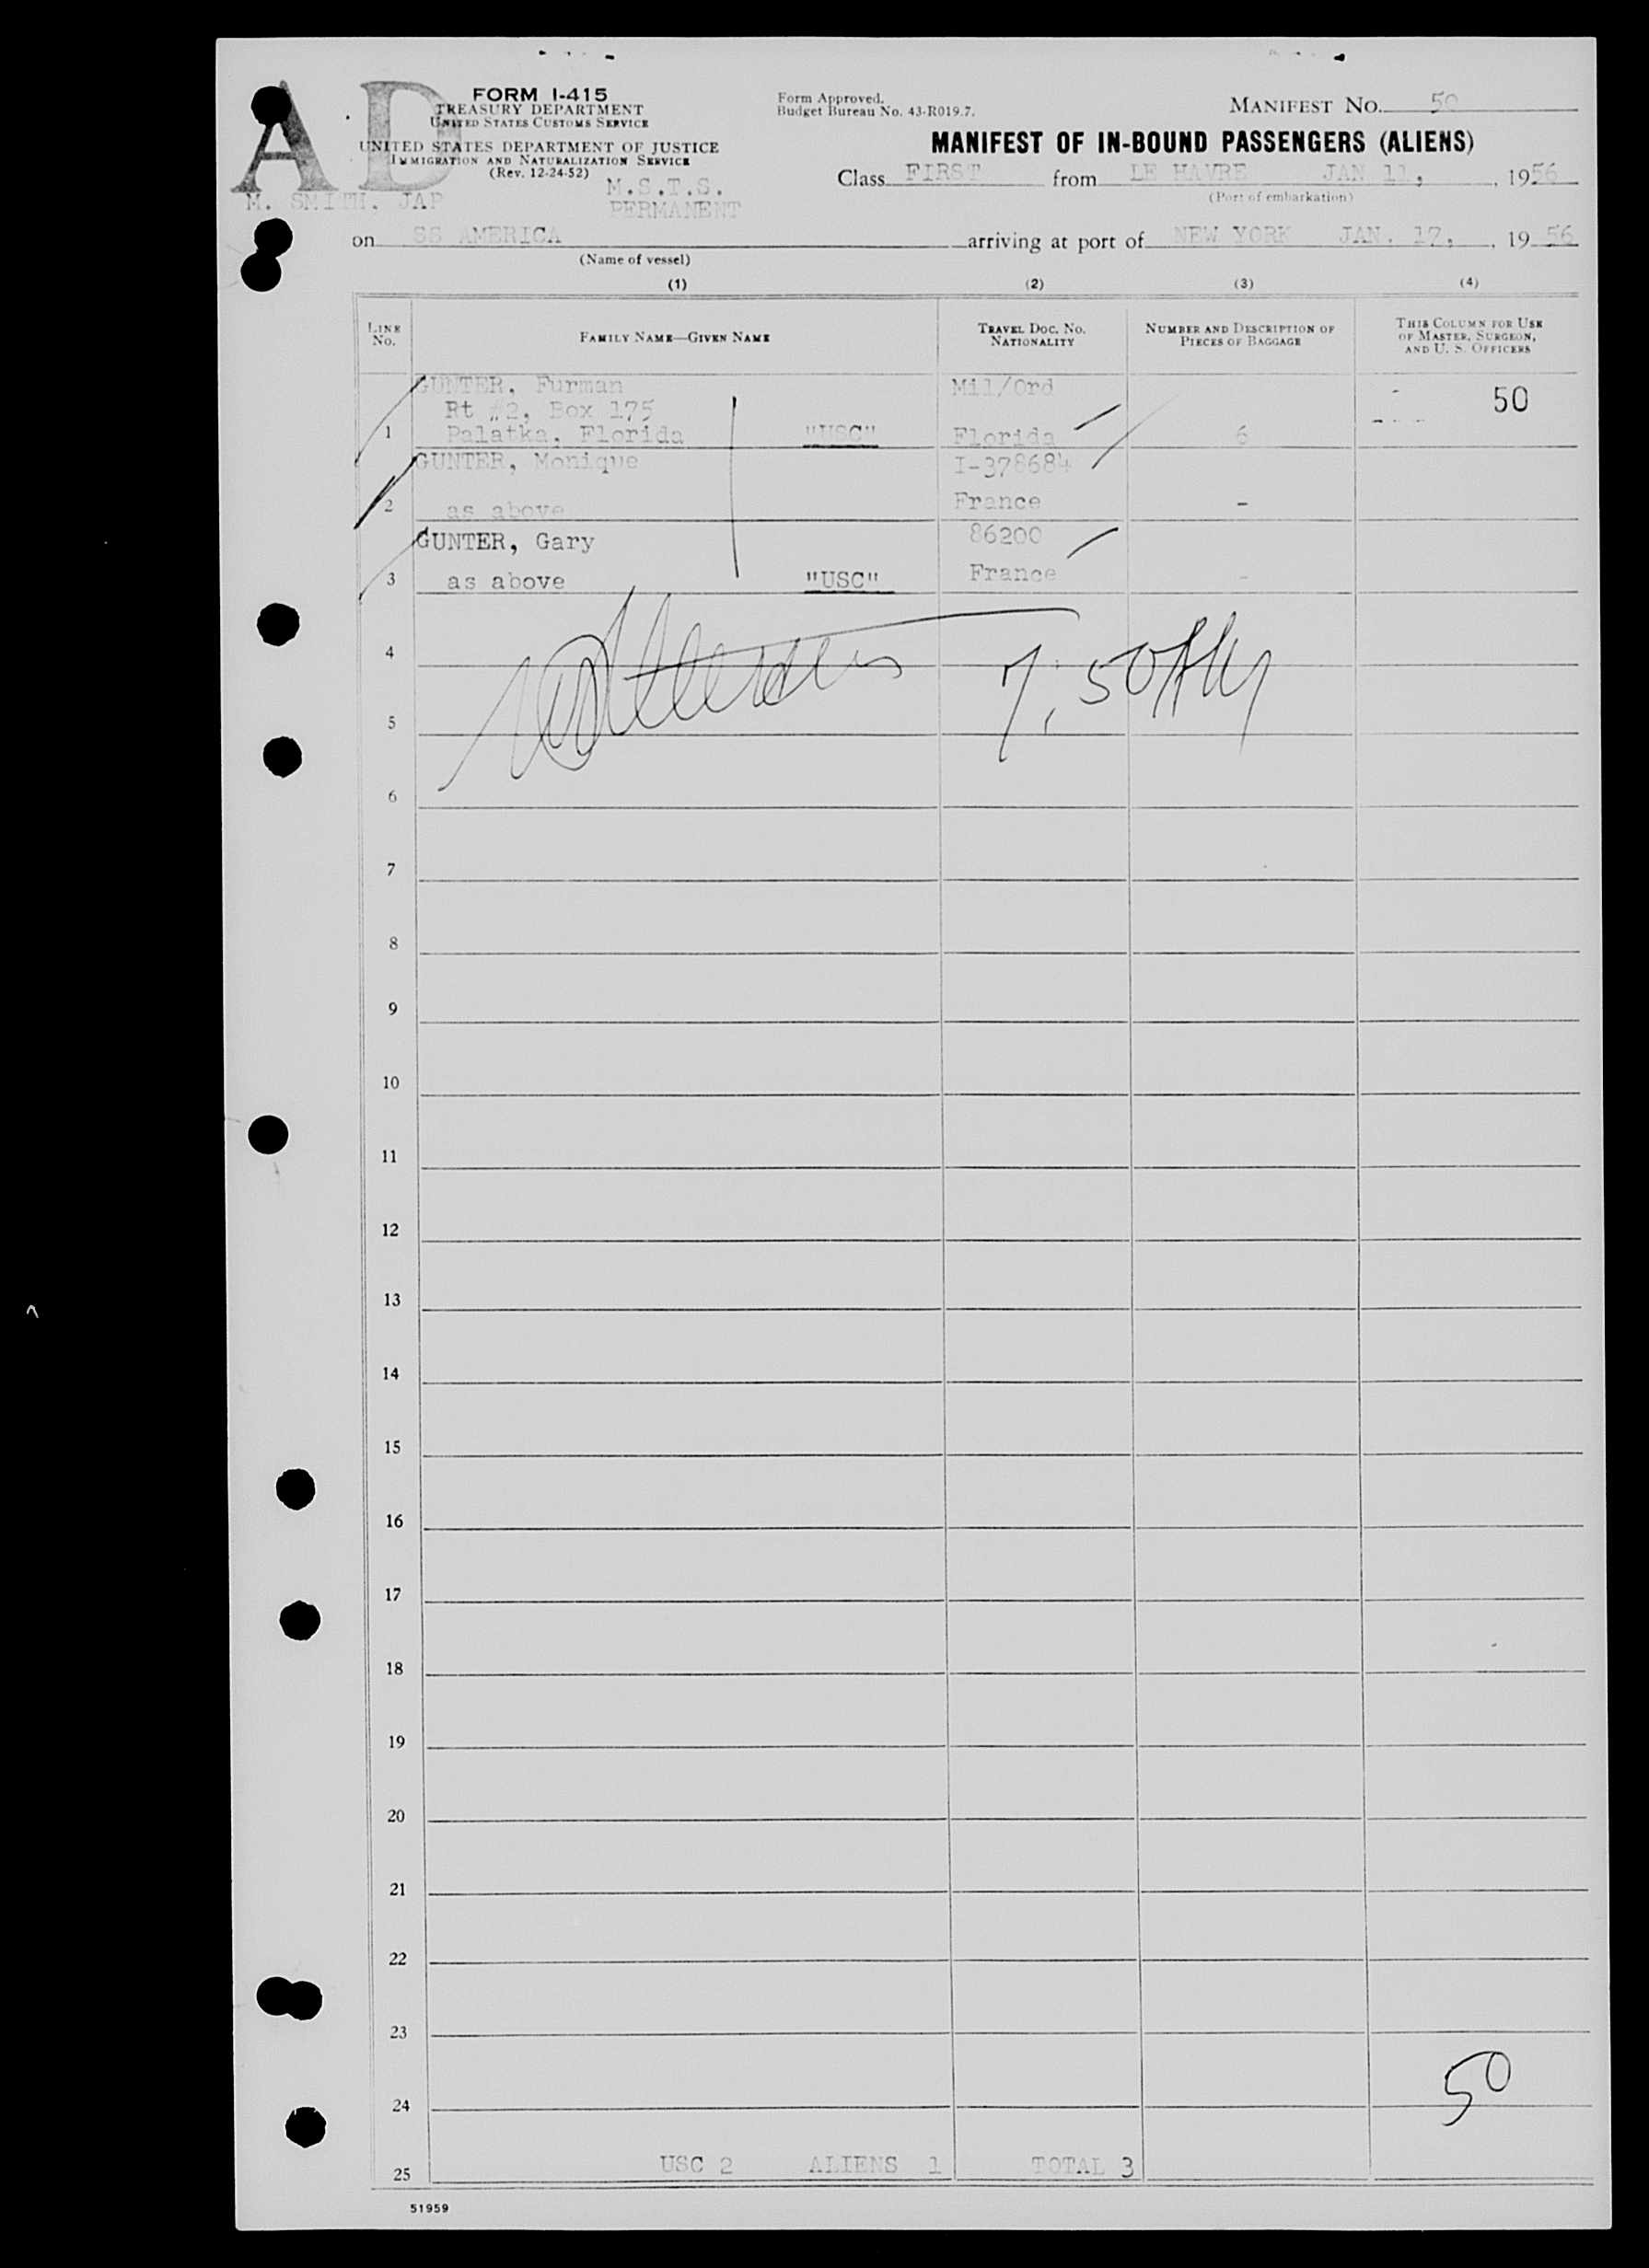 AD
FORM I-415
TREASURY DEPARTMENT
UNITED STATES CUSTOMS SERVICE
UNITED STATES DEPARTMENT OF JUSTICE
IMMIGRATION AND NATURALIZATION SERVICE
(Rev. 12-24-52)
M.S.T.S.
PERMANENT
M. SMITH. JAP
Form Approved.
Budget Bureau No. 43-R019.7.
MANIFEST NO. 50
MANIFEST OF IN-BOUND PASSENGERS (ALIENS)
Class FIRST from LE HAVRE JAN 11, , 1956
(Port of embarkation)
on SS AMERICA arriving at port of NEW YORK JAN. 17, , 19 56
(Name of vessel)
(1) (2) (3) (4)
LINE NO. FAMILY NAME—GIVEN NAME TRAVEL DOC. NO. NATIONALITY NUMBER AND DESCRIPTION OF PIECES OF BAGGAGE THIS COLUMN FOR USE OF MASTER, SURGEON, AND U. S. OFFICERS
GUNTER, Furman Mil/Ord 50
Rt #2, Box 175
1 Palatka, Florida "USC" Florida 6
GUNTER, Monique I-378684
2 as above France -
GUNTER, Gary 86200
3 as above "USC" France -
4
5
6
7
8
9
10
11
12
13
14
15
16
17
18
19
20
21
22
23
50
24
25 USC 2 ALIENS 1 TOTAL 3
51959